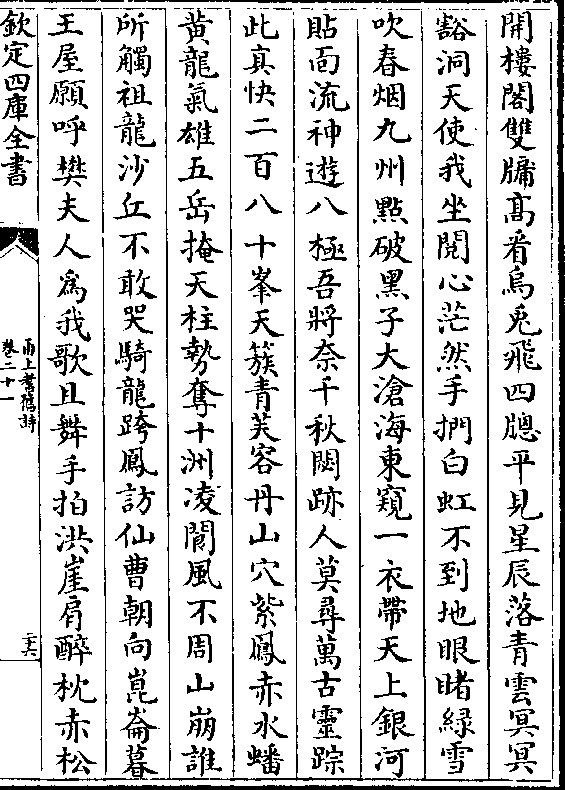 開樓閣雙牗髙看烏兎飛四牕平見星辰落青雲冥冥
豁洞天使我坐閱心茫然手捫白虹不到地眼睹緑雪
吹春烟九州㸃破黒子大滄海東窺一衣帶天上銀河
貼面流神遊八極吾將奈千秋闕跡人莫尋萬古靈踪
此真快二百八十峯天簇青芙容丹山穴紫鳳赤水蟠
黄龍氣雄五岳掩天柱勢奪十洲凌閬風不周山崩誰
所觸祖龍沙丘不敢哭騎龍跨鳳訪仙曹朝向崑崙暮
王屋願呼樊夫人為我歌且舞手拍洪崖肩醉枕赤松
欽定四庫全書
甬上耆舊詩
卷二十一
二六